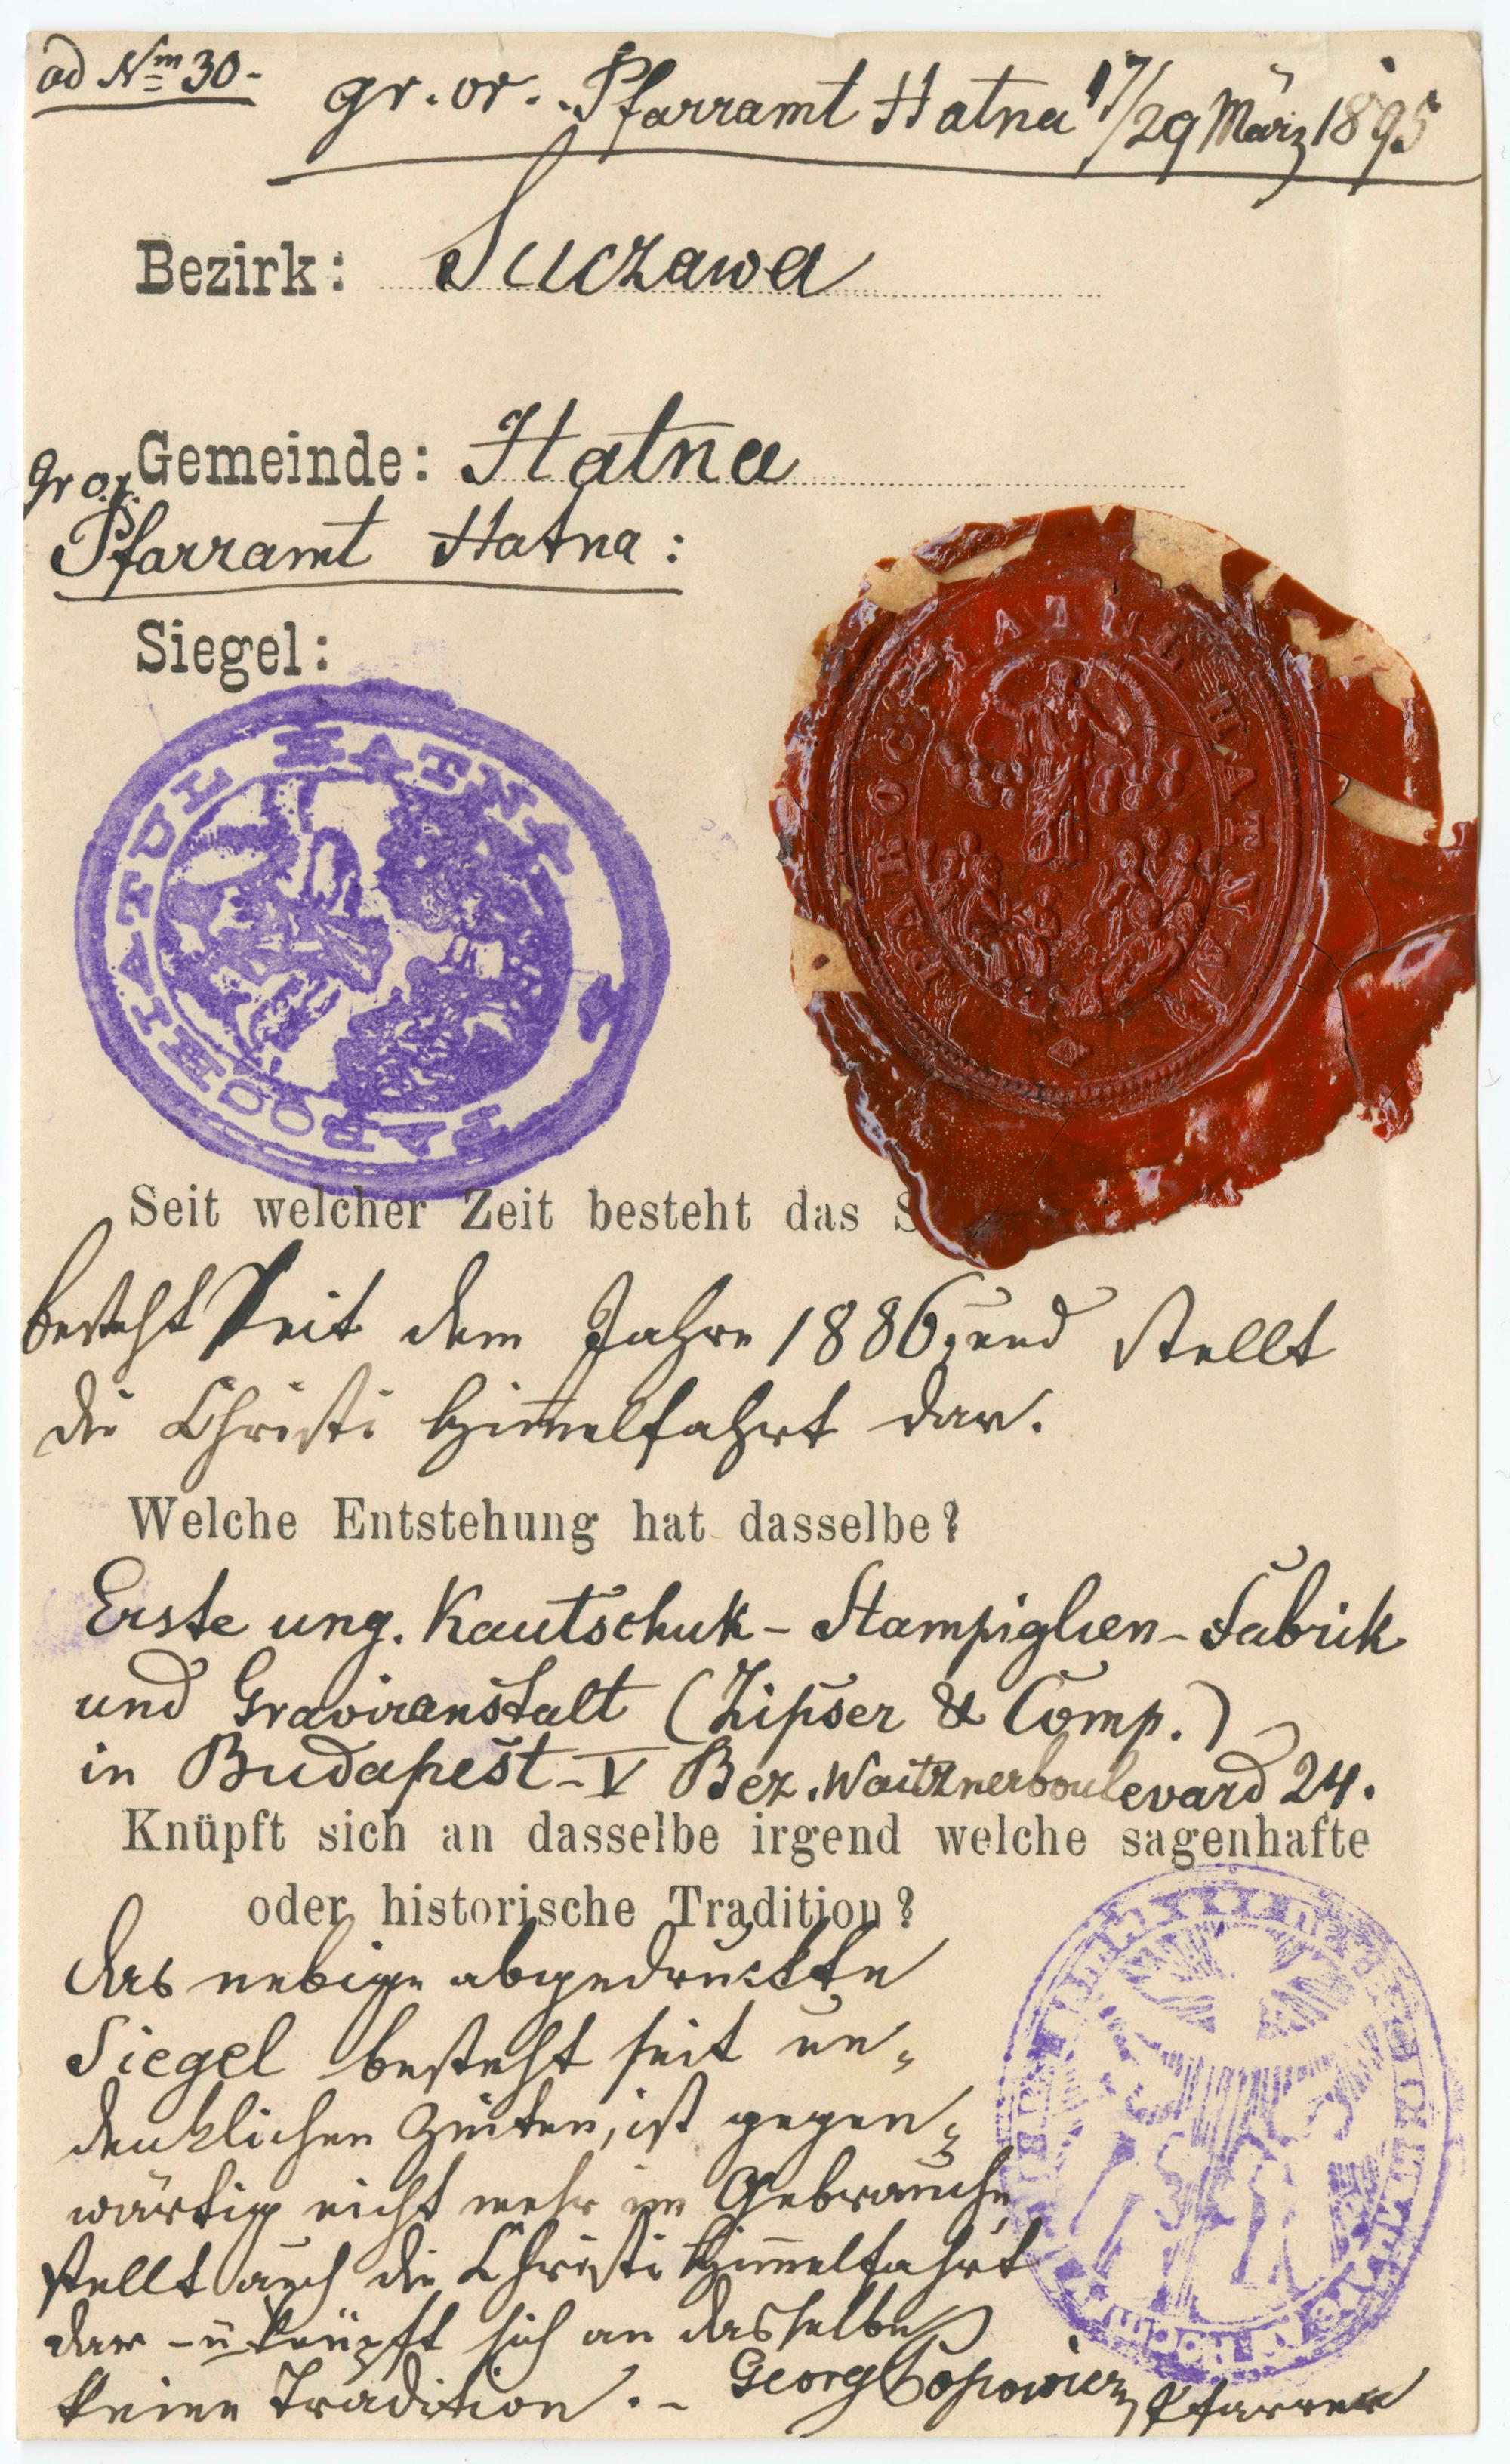 ad Nm 30-
gr. or. Pfarramt Hatna 17/29 März 1895
Bezirk: Suczawa
Gemeinde: Hatna
gr or.
Pfarramt Hatna:
Siegel:
PAROHIA EFUL HATNA
PAROCHIATILE HATNA
Seit welcher Zeit besteht das S
besteht seit dem Jahre 1886, und stellt
die Christi Himmelfahrt dar.
Welche Entstehung hat dasselbe?
Erste ung. Kautschuk-Stampiglien-Fabrik
und Graviranstalt (Zipser & Comp.)
in Budapest-V Bez. Waitznerboulevard 24.
Knüpft sich an dasselbe irgend welche sagenhafte
oder historische Tradition?
Das nebige abgedruckte
Siegel besteht seit un-
denklichen Zeiten, ist gegen-
wärtig nicht mehr im Gebrauche,
stellt auch die Christi Himmelfahrt
dar - u knüpft sich an dasselbe
keine Tradition. -
Georg Popowicz, Pfarrer